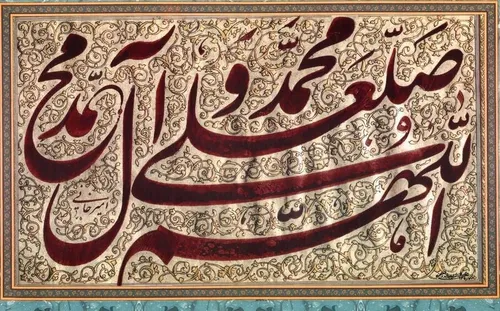 اللهم صل علی محمد و آل محمد